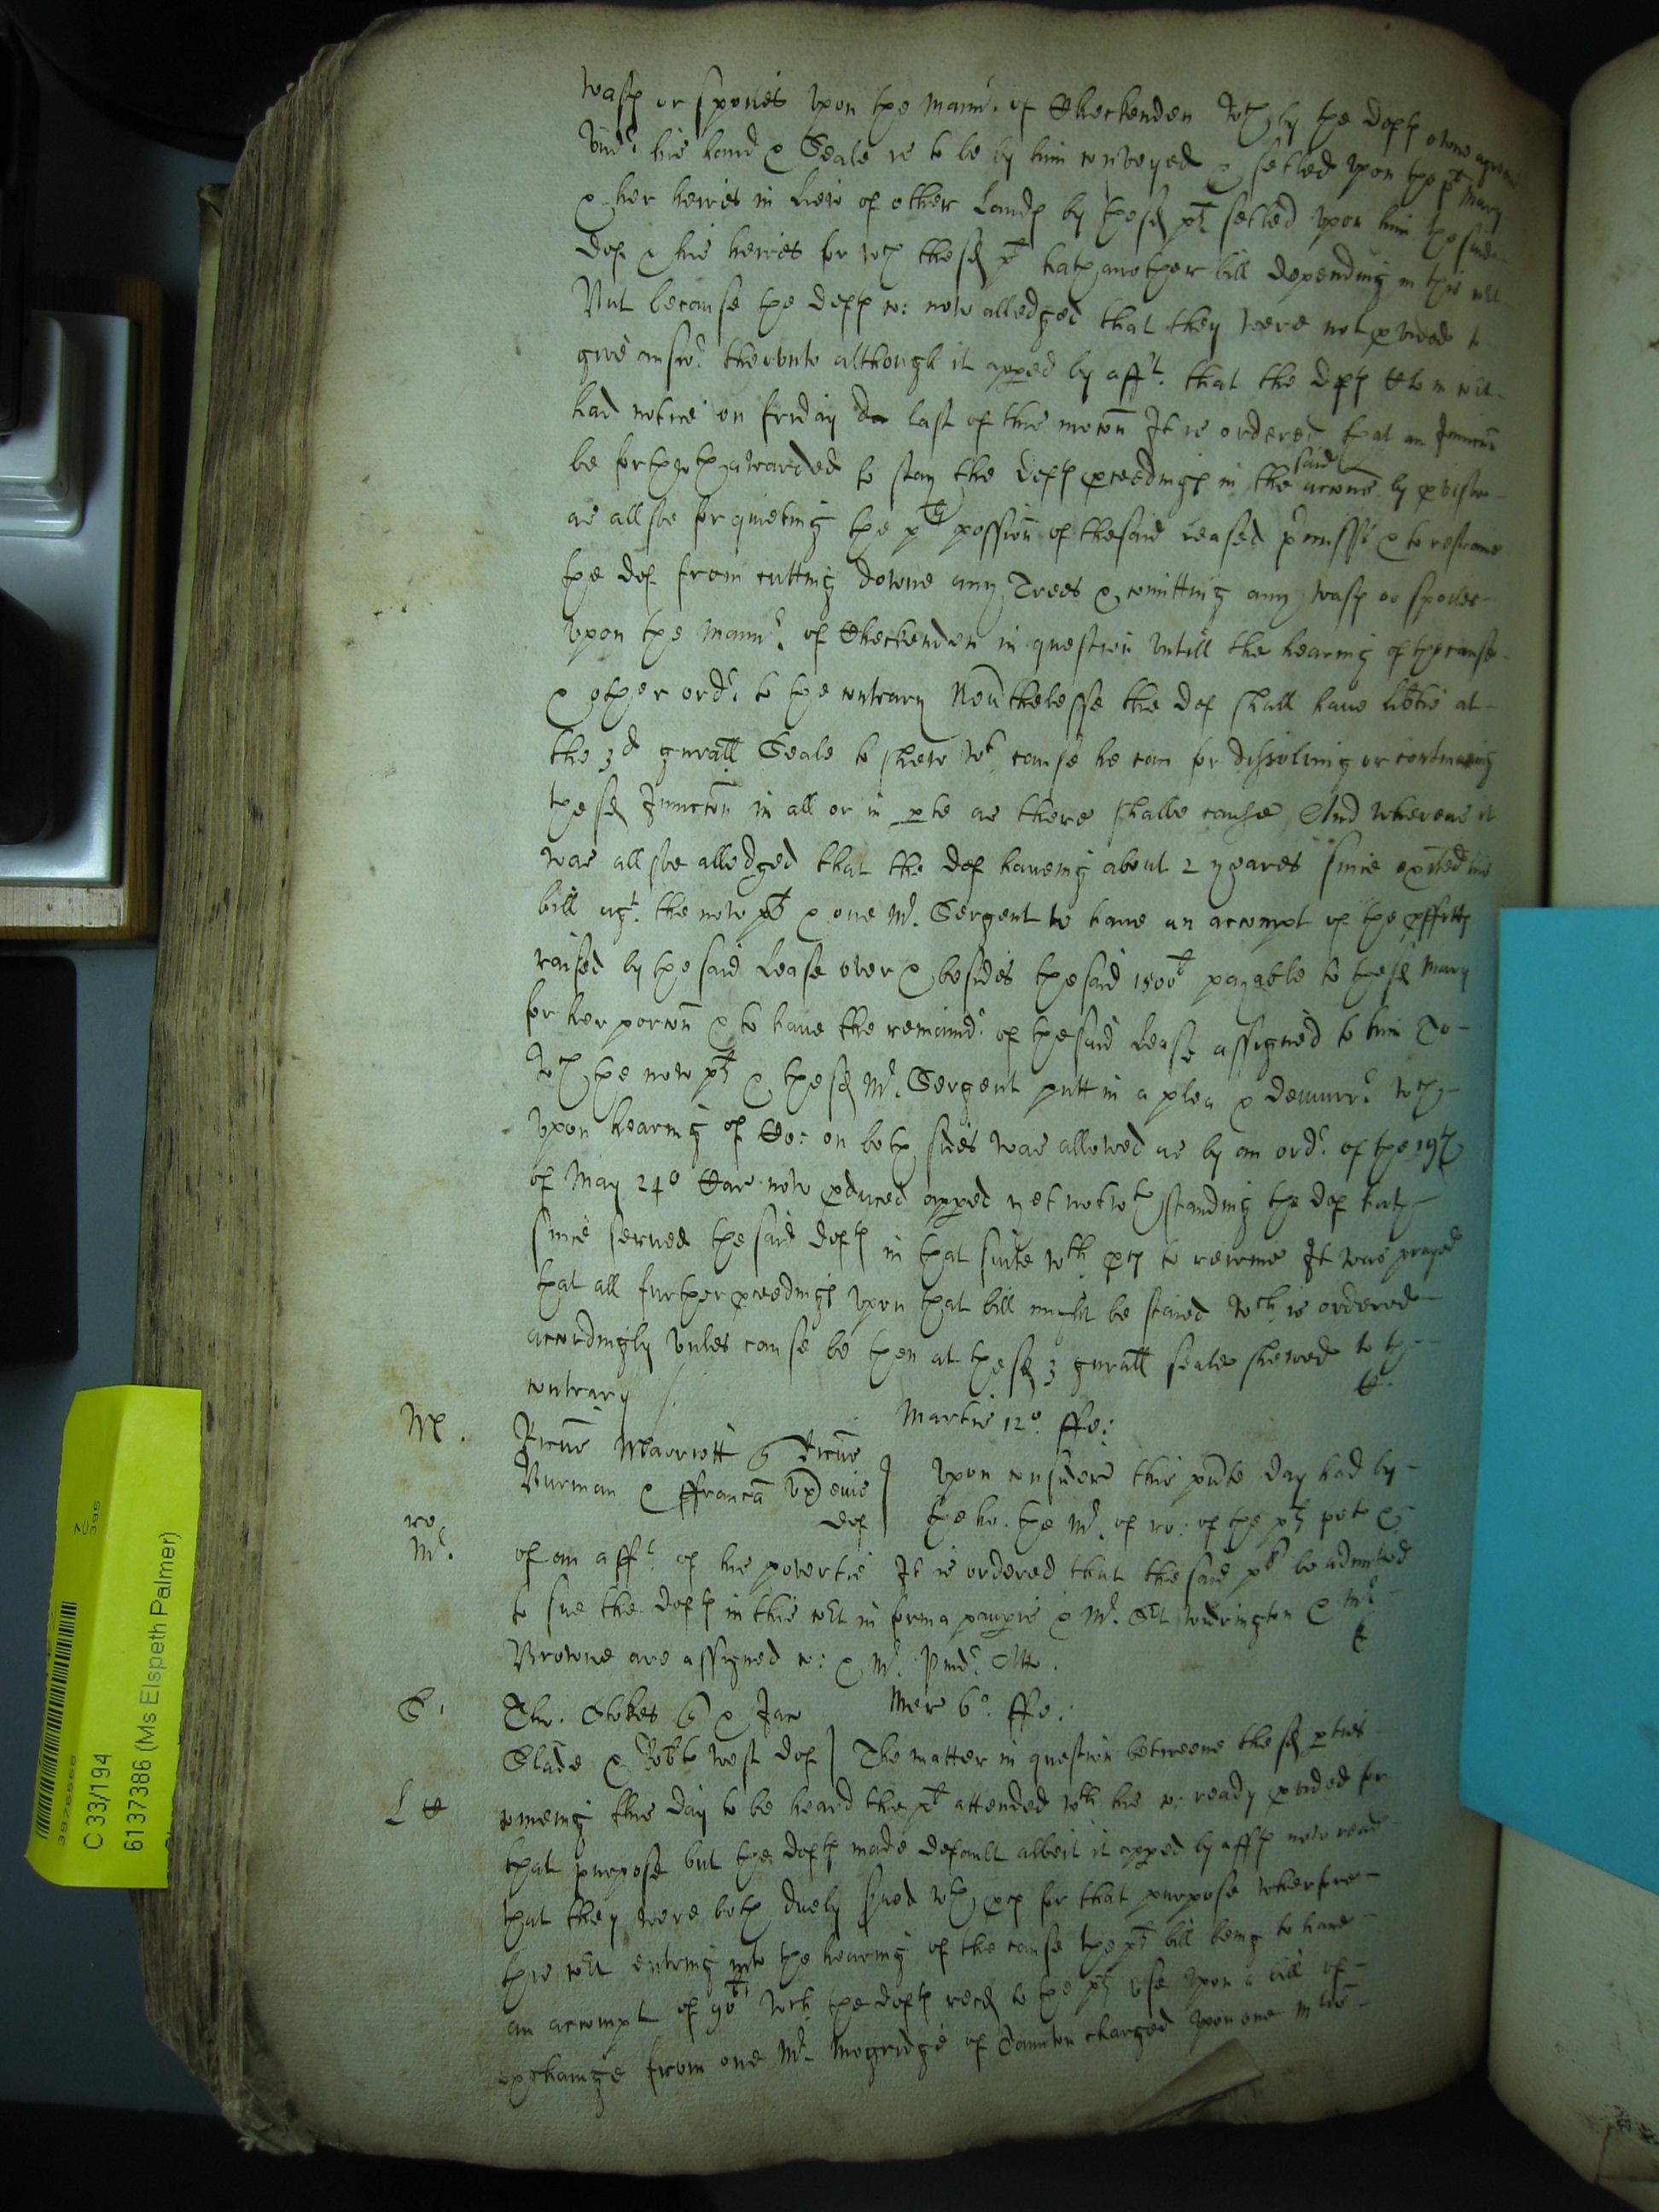 wast or spoiles upon the Mann.r of Checkenden wch by the defts owne agreem
und.r his hand & Seale is to be by him conveyed & setled upon the plt Mary
& her heires in liew of other lands by the sd plt setled upon him the said
deft & his heires for wch the sd plt hath another bill depending in this Cot
But because the defts co: now alledged that they were not pvided to
give answ.r therunto although it apped by afft. that the defts
had notice on friday last of this mocon It is ordered that an Iniuncon
be forthwth awarded to stay the defts pceedings in the said accons by
as allsoe for quieting the plts possion of the said leased pmisses & to restraine
the deft from cutting downe any Trees & comitting any wast or spoiles
upon the Mann.r of Checkenden in question untill the hearing of the cause
& other ord.r to the contrary Neu'thelesse the deft shall have libtie at
the 3d gnrall Seale to shew wt cause he can for dissolving or continueing
the sd Iniuncon in all or in pte as there shalbe cause And whereas it
was allsoe alledged that the deft haveing about 2 yeares since exited his
bill agt. the now plt & one Mr. Sergent to have an accompt of the pffitts
raised by the said lease over & besides the said 1500l payable to the sd Mary
for her porcon & to have the remaind.r of the said lease assigned to him To
wch the now plt & the sd Mr. Sergent putt in a plea & demurr.r wch
upon hearing of Co: on both sides was allowed as by an ord.r of the 19th
of May 24o Car now pduced apped yet notwthstanding the deft hath
since served the said defts in that suite wth pces to reioine It was prayed
that all further pceedings upon that bill might be staied wch is ordered
accordingly unles cause be then at the sd 3 gnrall seale shewed to the
contrary
Martis 12o. ffe:
Marriott
Burman & ffranca uxor eius
deft
Upon consideracon this pnte day had by
the ho. the Mr. of ro: of the plts peto &
ro
Mr.
of an afft of his povertie It is ordered that the said plt be admitted
to sue the defts in this Cot in forma paupis & Mr. Widrington & Mr
Browne are assigned co: & Mr. Atto.
S.
Tho. Stokes & Jac
Mer 6o. ffe:
Slade & Robte West deft
The matter in question betweene the sd pties
comeing this day to be heard the plt attended wth his co: ready pvided for
that purpose but the defts made default albeit it apped by affts now read
that they were both duely sved wth pces for that purpose wherfore
this Cot entring into the hearing of the cause the plts bill being to have
an accompt of 90l wch the defts recd to the plts use upon a bill of
exchange from one Mr. Mogridge of Taunton charged upon one
C 33/194
6137386 (Ms Elspeth Palmer)